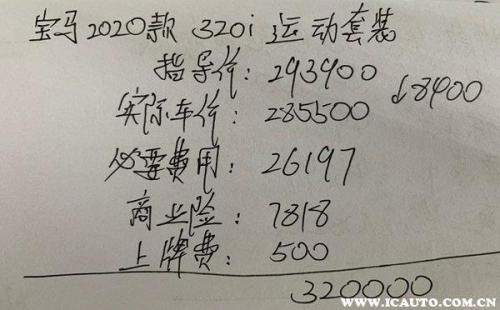 宝马2020款 320i 运动套装
指导价: 293900
↓8400
实际车价: 285500
必要费用: 26197
商业险: 7818
上牌费: 500
320000
爱卡汽车
WWW.ICAUTO.COM.CN